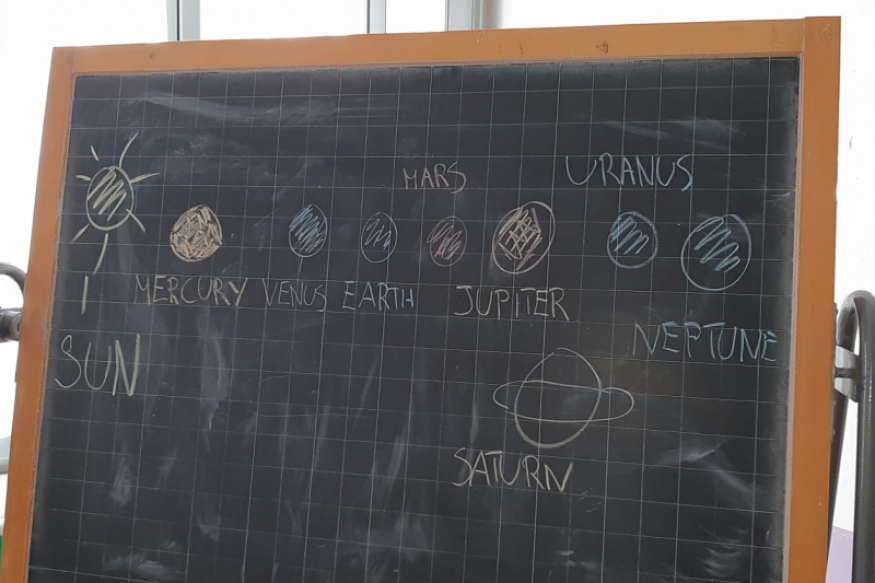 MARS
URANUS
MERCURY VENUS EARTH JUPITER
NEPTUNE
SUN
SATURN